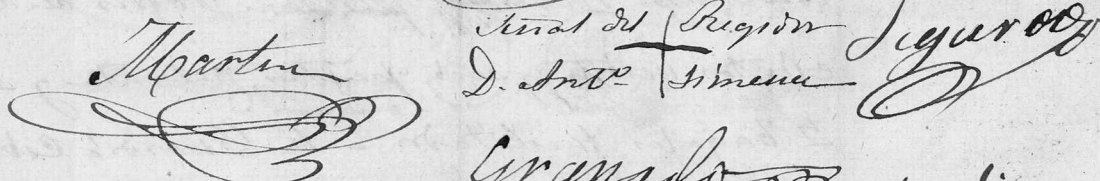 Martin
Señal del Regidor
D. Antº Jimenez
Figueroa
Granado